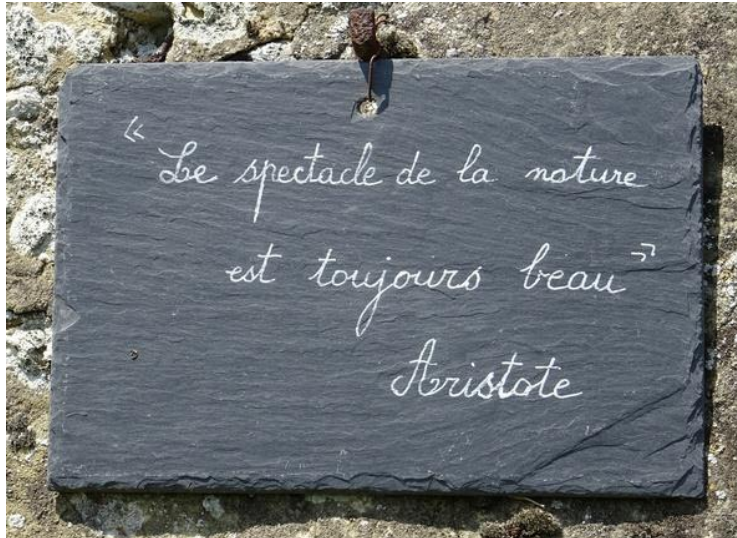 « Le spectacle de la nature
est toujours beau »
Aristote